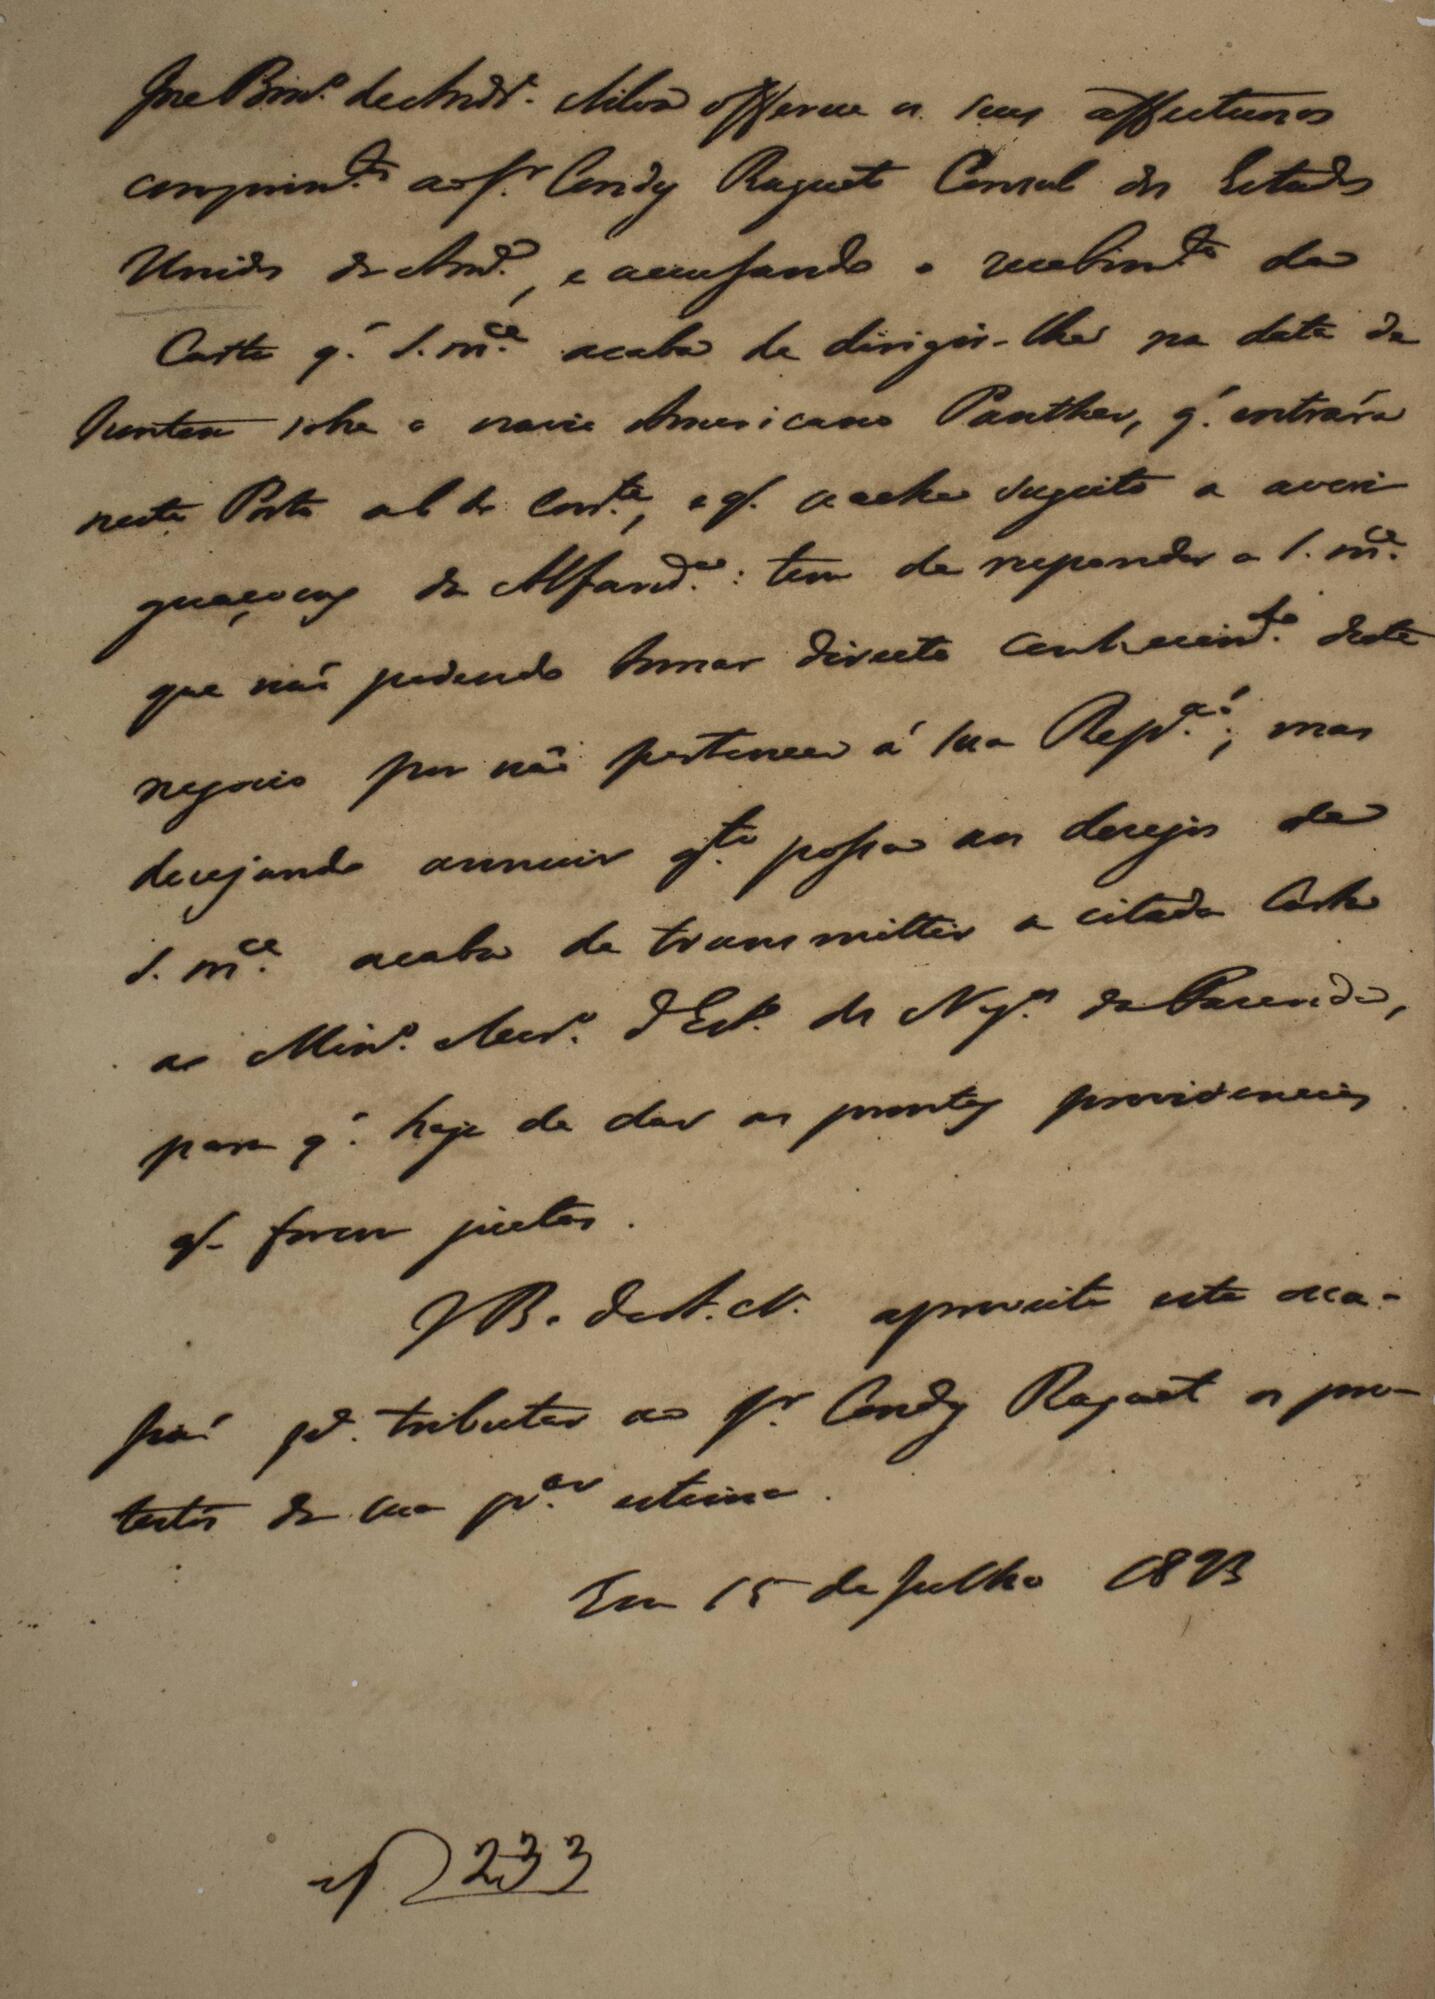 Joze Bon.º de Andr.ª e Silva offerece os seus affectuosos
comprim.tos ao Sr. Condy Raguet Consul dos Estados
Unidos da Am.ª, e accusando o recebim.to da
Carta q. S. m.ce acaba de dirigir-lhe na data de
hontem sobre o navio Americano Panther, q. entrára
neste Porto a 6 do corr.te, e q. se acha sugeito a averi
guaçoens da Alfand.ª: tem de responder a S. m.ce
que não podendo tomar directo conhecim.to deste
negocio por não pertencer á sua Rep.am; mas
desejando annuir q.to possa aos desejos de
S. m.ce acaba de transmittir a citada Carta
ao Min.º e Secr.º d'Est.º dos Neg.os da Fazenda,
para q. haja de dar as promptas providencias
q. forem justas.
J B. de A. e S. aproveita esta occa-
sião p.ª tributar ao Sr. Condy Raguet os pro-
testos da sua p.ar estima.
Em 15 de Julho 1823
233